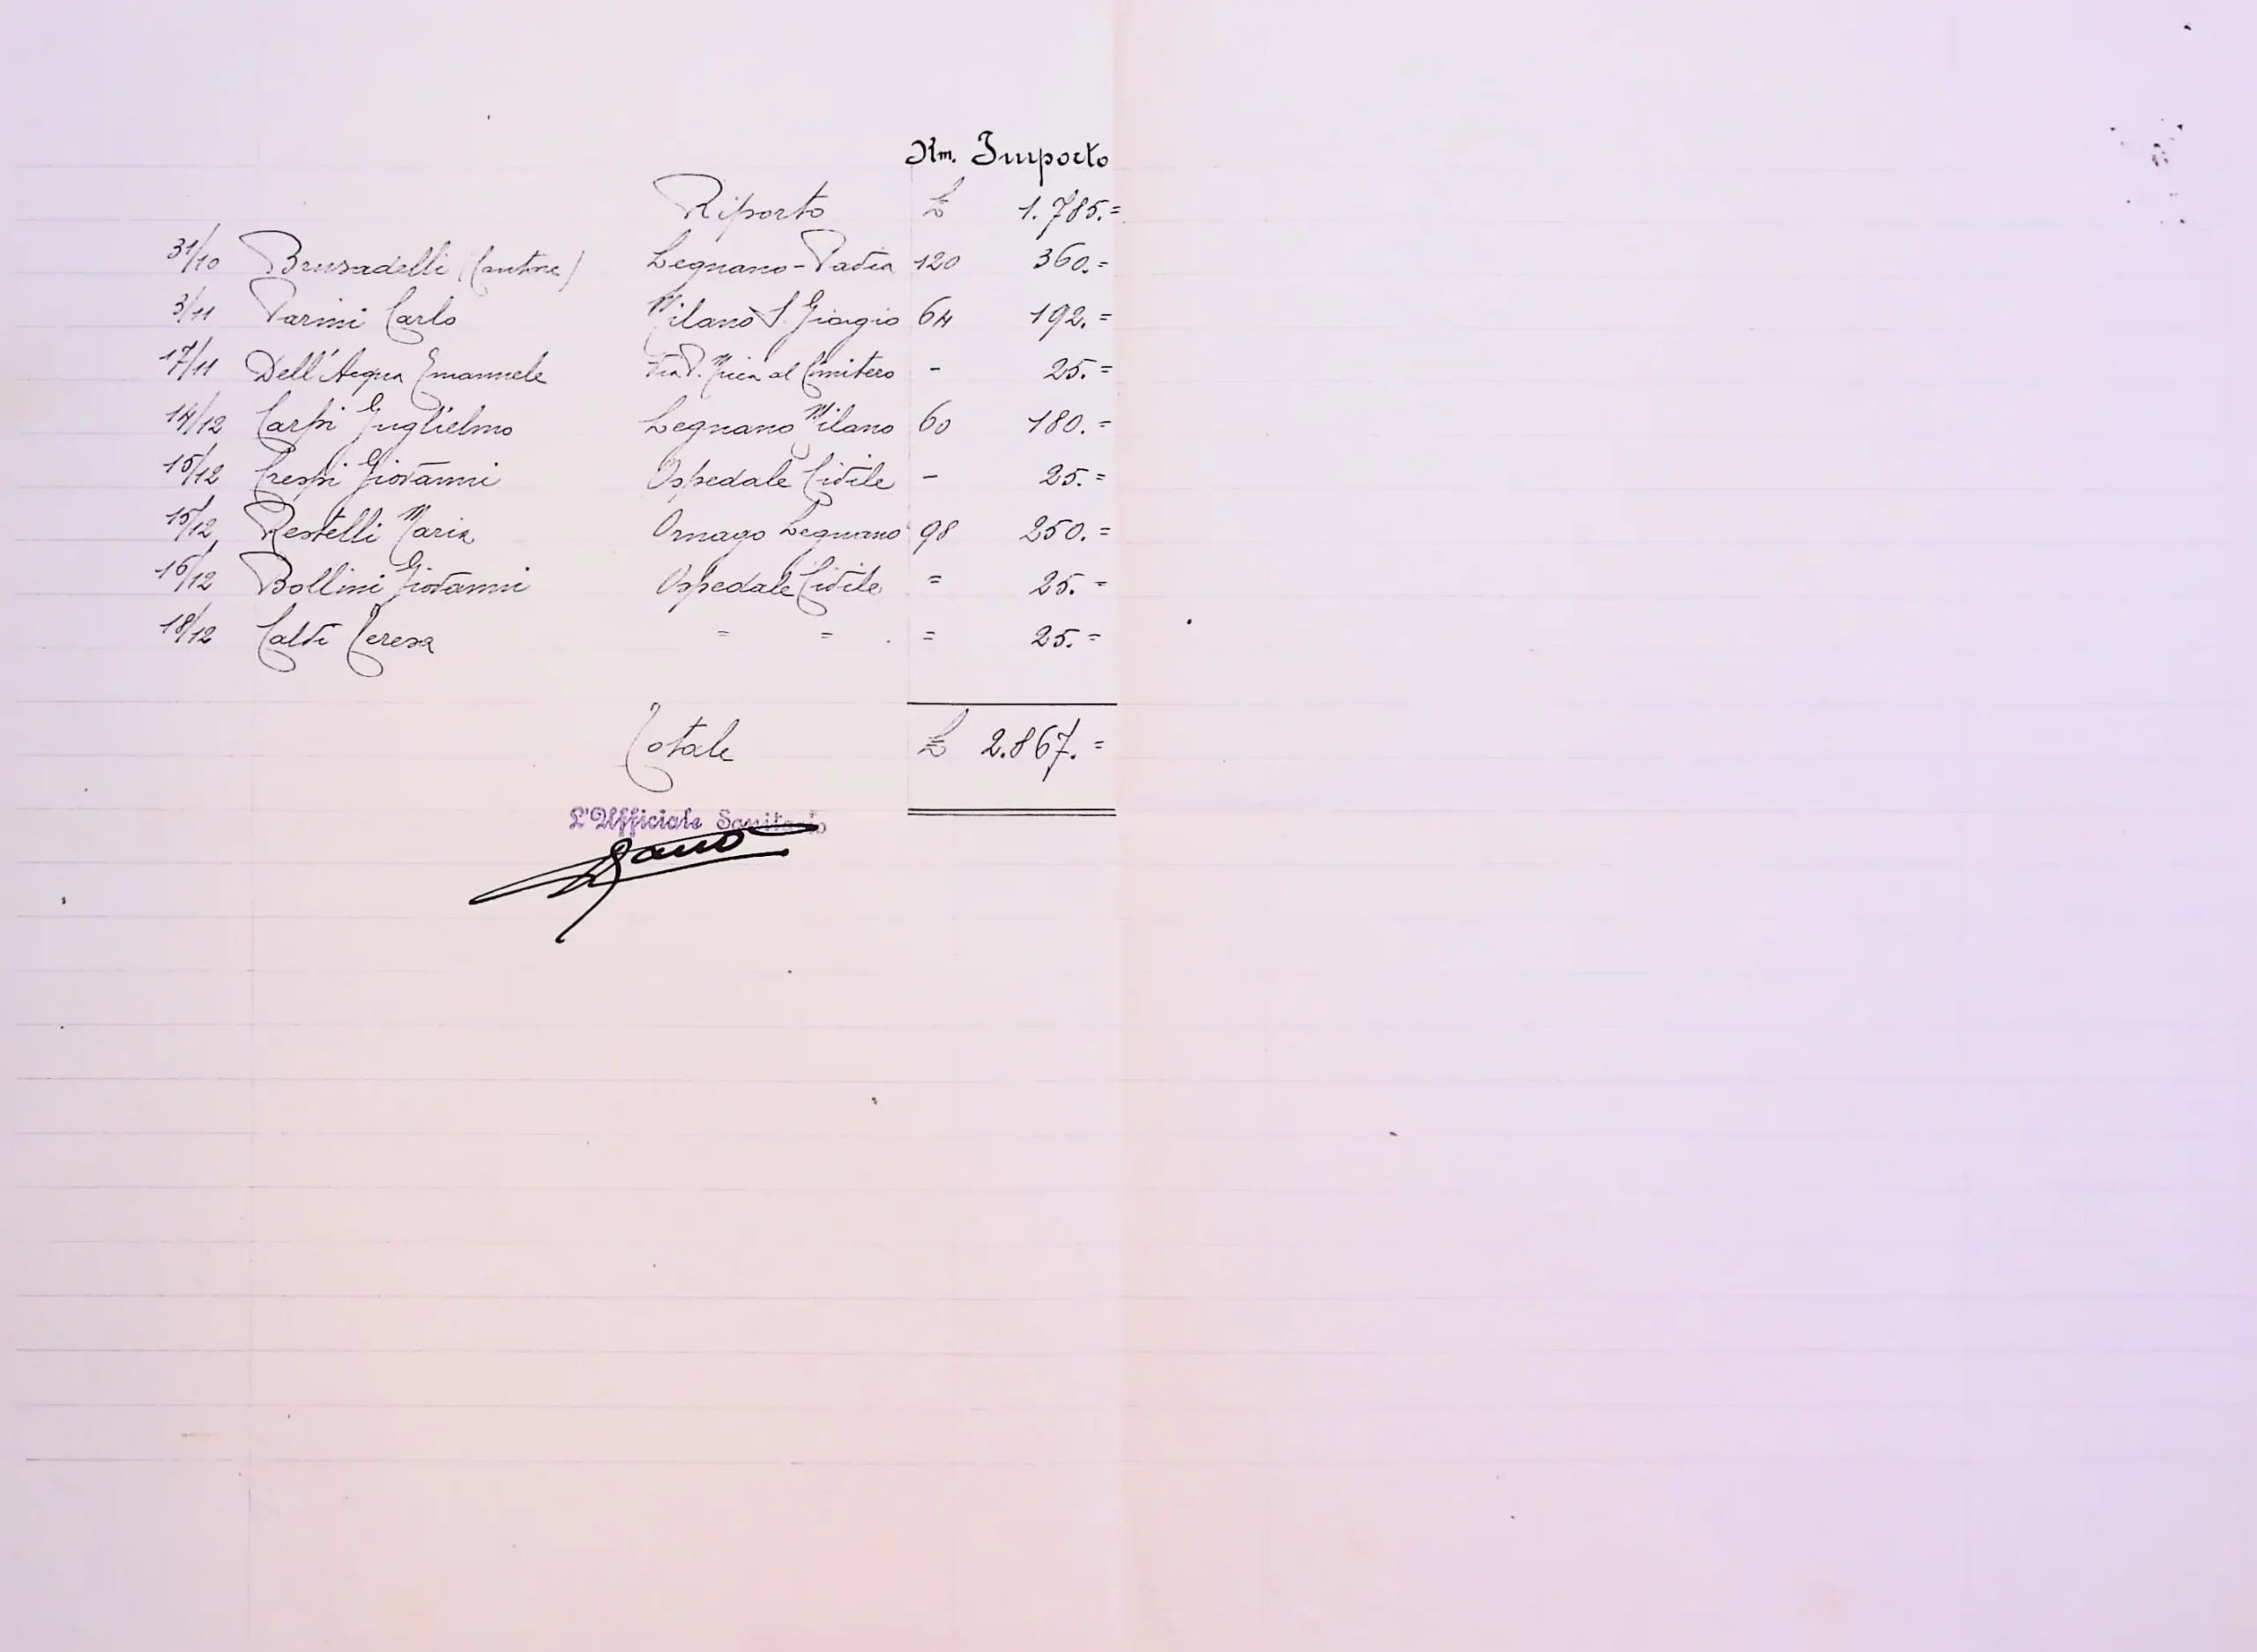 Km. Importo
Riporto £ 1.785.=
31/10 Brusadelli (Cantone) Legnano-Pavia 120 360.=
3/11 Parini Carlo Milano S. Giorgio 64 192.=
17/11 Dell'Acqua Emanuele Via P. Mica al Cimitero - 25.=
14/12 Carpi Guglielmo Legnano Milano 60 180.=
15/12 Crespi Giovanni Ospedale Civile - 25.=
15/12 Restelli Maria Ornago Legnano 98 250.=
16/12 Bollini Giovanni Ospedale Civile = 25.=
18/12 Calvi Teresa = = = 25.=
Totale £ 2.867.=
L'Ufficiale Sanitario